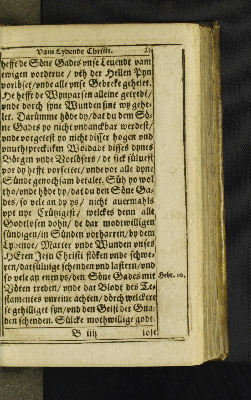 Vam Lydende Christi.
hefft de Söne Gades vnse Leuendt vam
ewigen vorderue / vth der Hellen Pyn
vorlöset / vnde alle vnse Gebreke gehelet.
He hefft de Wynparsen alleine getredt /
vnde dorch syne Wunden sint wy gehe-
let. Darümme höde dy / dat du dem Sö-
ne Gades yo nicht vndanckbar werdest /
vnde vorgetest yo nicht disser hogen vnde
vnuthsprecklicken Woldadt disses dynes
Börgen vnde Vorlösers / de sick süluest
vor dy hefft vorsettet / vnde vor alle dyne
Sünde genochsam betalet. Süh yo wol
tho / vnde höde dy / dat du den Söne Ga-
des / so vele an dy ys / nicht auermahls
vpt nye Crützigest / welckes denn alle
Godtlosen dohn / de dar modtwilligen
sündigen / in Sünden vortharren / by dem
Lydende / Marter vnde Wunden vnses
HEren Jesu Christi flöken vnde schwe-
ren / datsüluige schenden vnd lastern / vnd
so vele an enen ys / den Söne Gades mit
Vöten treden / vnde dat Blodt des Te-
stamentes vnreine achten / dorch welckere
se gehilliget syn / vnd den Geist der Gna-
den schenden. Sülcke mothwillige godt-
Hebr. 10.
B iiij
lose